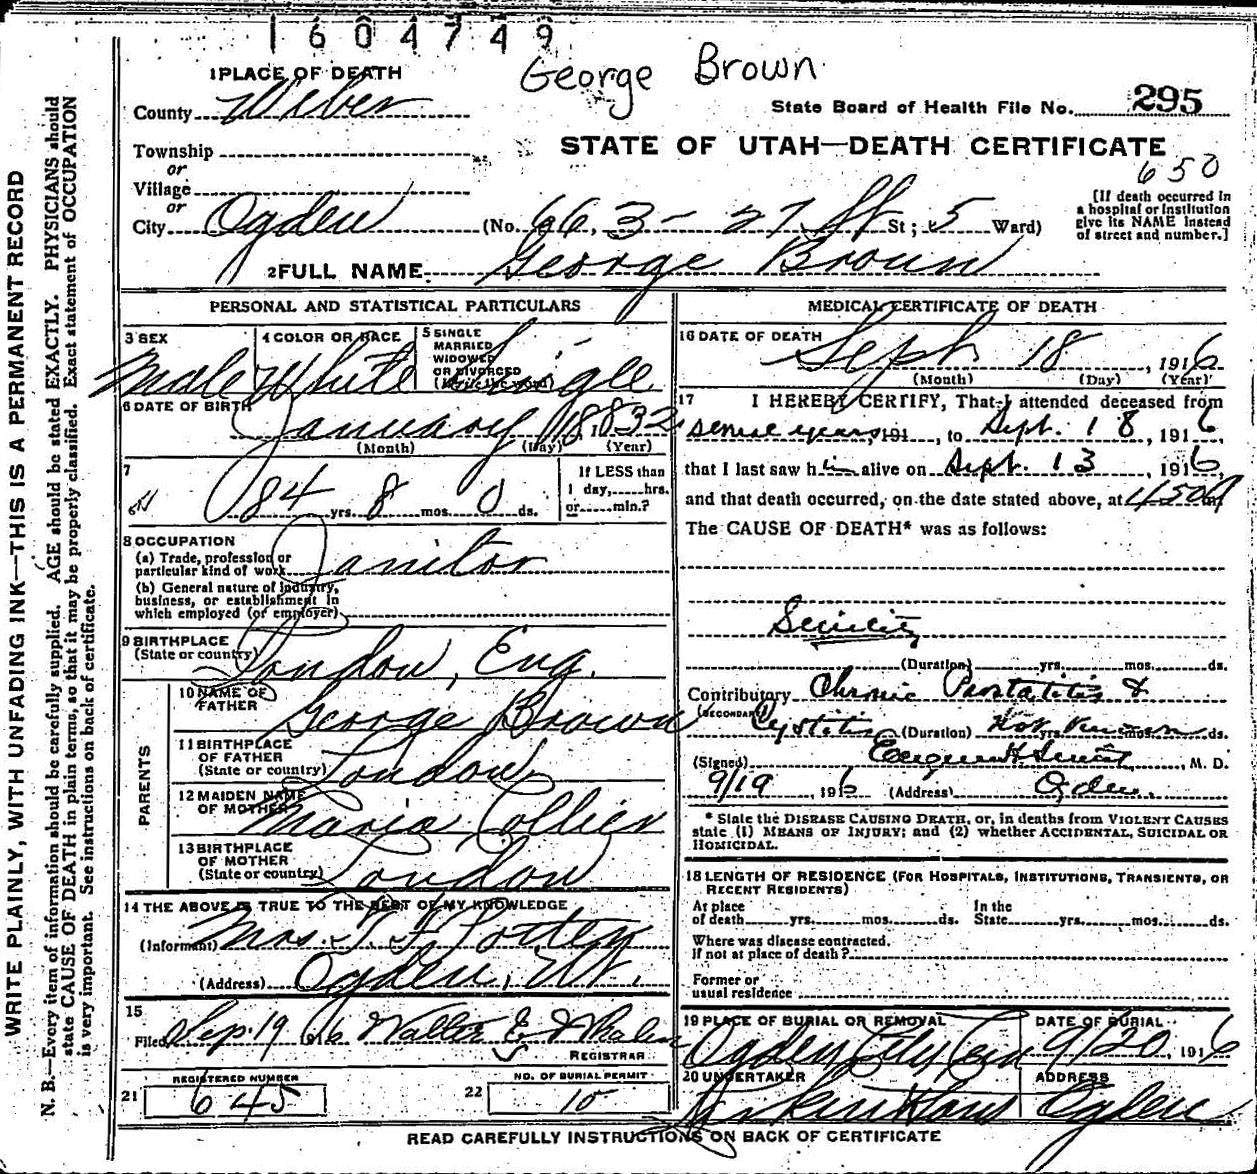 1604749
George Brown
1 PLACE OF DEATH
County Weber
State Board of Health File No. 295
STATE OF UTAH—DEATH CERTIFICATE
650
Township
or
Village
or
City Ogden (No. 663 - 27 St St; 5 Ward)
[If death occurred in a hospital or institution give its NAME instead of street and number.]
2 FULL NAME George Brown
PERSONAL AND STATISTICAL PARTICULARS
3 SEX
Male
4 COLOR OR RACE
White
5 SINGLE MARRIED WIDOWED OR DIVORCED (Write the word)
Single
6 DATE OF BIRTH
January 18, 1832
(Month) (Day) (Year)
7
84 yrs. 8 mos. 0 ds.
If LESS than 1 day, hrs. or min.?
8 OCCUPATION
(a) Trade, profession or particular kind of work Janitor
(b) General nature of industry, business, or establishment in which employed (or employer)
9 BIRTHPLACE (State or country) London, Eng.
PARENTS
10 NAME OF FATHER George Brown
11 BIRTHPLACE OF FATHER (State or country) London
12 MAIDEN NAME OF MOTHER Maria Collier
13 BIRTHPLACE OF MOTHER (State or country) London
14 THE ABOVE IS TRUE TO THE BEST OF MY KNOWLEDGE
(Informant) Mrs. Potter
(Address) Ogden, Ut.
15
Filed Sep. 19 1916 Walter E Whalen
REGISTRAR
21 REGISTERED NUMBER 645
22 NO. OF BURIAL PERMIT 10
MEDICAL CERTIFICATE OF DEATH
16 DATE OF DEATH
Sept 18, 1916
(Month) (Day) (Year)
17 I HEREBY CERTIFY, That I attended deceased from
several years, 191 , to Sept. 18, 1916,
that I last saw him alive on Sept. 13, 1916,
and that death occurred, on the date stated above, at 450A m
The CAUSE OF DEATH* was as follows:
Senility
(Duration) yrs. mos. ds.
Contributory Chronic Prostatitis &
(SECONDARY) Cystitis (Duration) yrs. mos. ds.
(Signed) M. D.
9/19, 1916 (Address) Ogden.
* State the DISEASE CAUSING DEATH, or, in deaths from VIOLENT CAUSES
state (1) MEANS OF INJURY; and (2) whether ACCIDENTAL, SUICIDAL OR
HOMICIDAL.
18 LENGTH OF RESIDENCE (FOR HOSPITALS, INSTITUTIONS, TRANSIENTS, OR
RECENT RESIDENTS)
At place of death yrs. mos. ds. In the State yrs. mos. ds.
Where was disease contracted.
If not at place of death?
Former or
usual residence
19 PLACE OF BURIAL OR REMOVAL
Ogden City Cem
DATE OF BURIAL
9/20, 1916
20 UNDERTAKER
ADDRESS
Ogden
READ CAREFULLY INSTRUCTIONS ON BACK OF CERTIFICATE
WRITE PLAINLY, WITH UNFADING INK—THIS IS A PERMANENT RECORD
N. B.—Every item of information should be carefully supplied. AGE should be stated EXACTLY. PHYSICIANS should
state CAUSE OF DEATH in plain terms, so that it may be properly classified. Exact statement of OCCUPATION
is very important. See instructions on back of certificate.